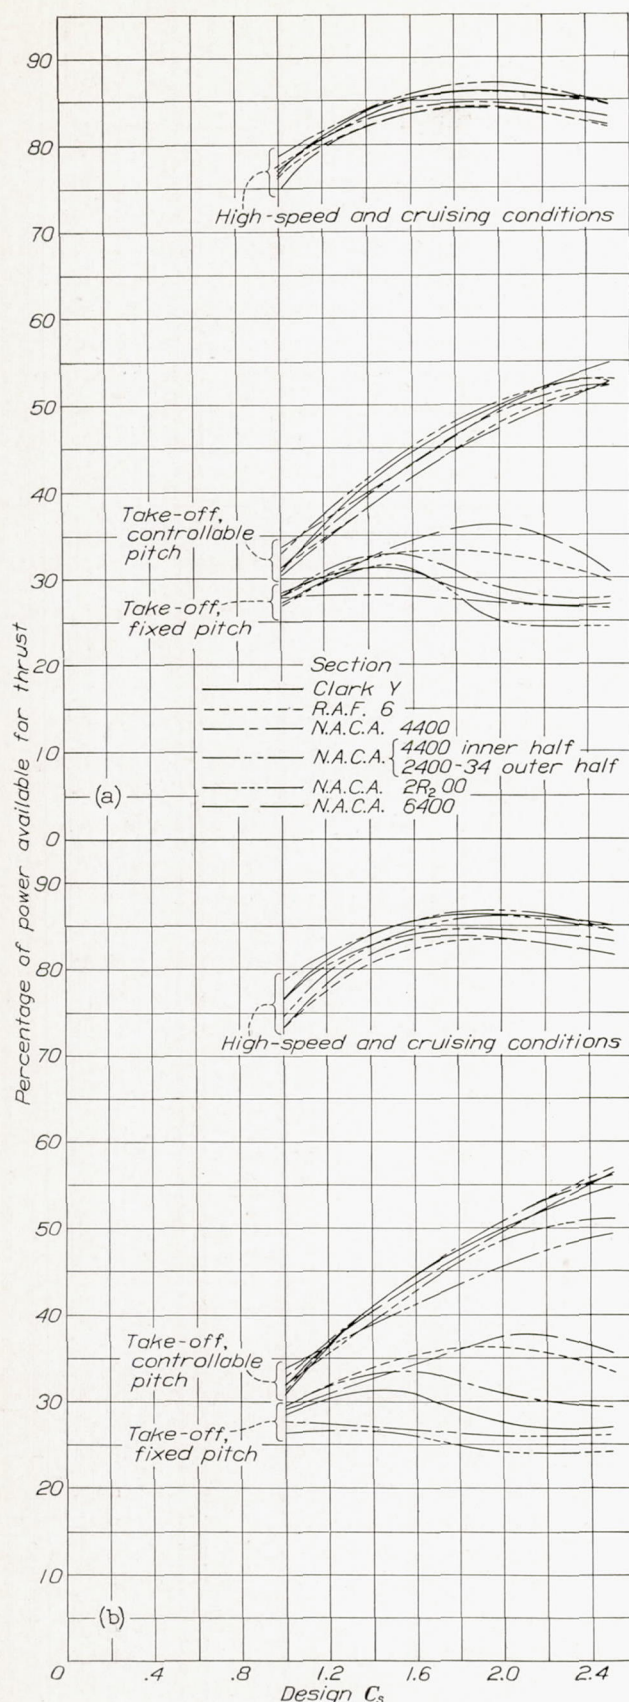 90
80
High-speed and cruising conditions
70
60
50
40
Take-off,
controllable
pitch
30
Take-off,
fixed pitch
20
Section
Clark Y
R.A.F. 6
N.A.C.A. 4400
N.A.C.A. { 4400 inner half
2400-34 outer half
10
N.A.C.A. 2R₂00
(a)
N.A.C.A. 6400
0
Percentage of power available for thrust
90
80
High-speed and cruising conditions
70
60
50
40
Take-off,
controllable
pitch
30
Take-off,
fixed pitch
20
10
(b)
0 .4 .8 1.2 1.6 2.0 2.4
Design Cₛ